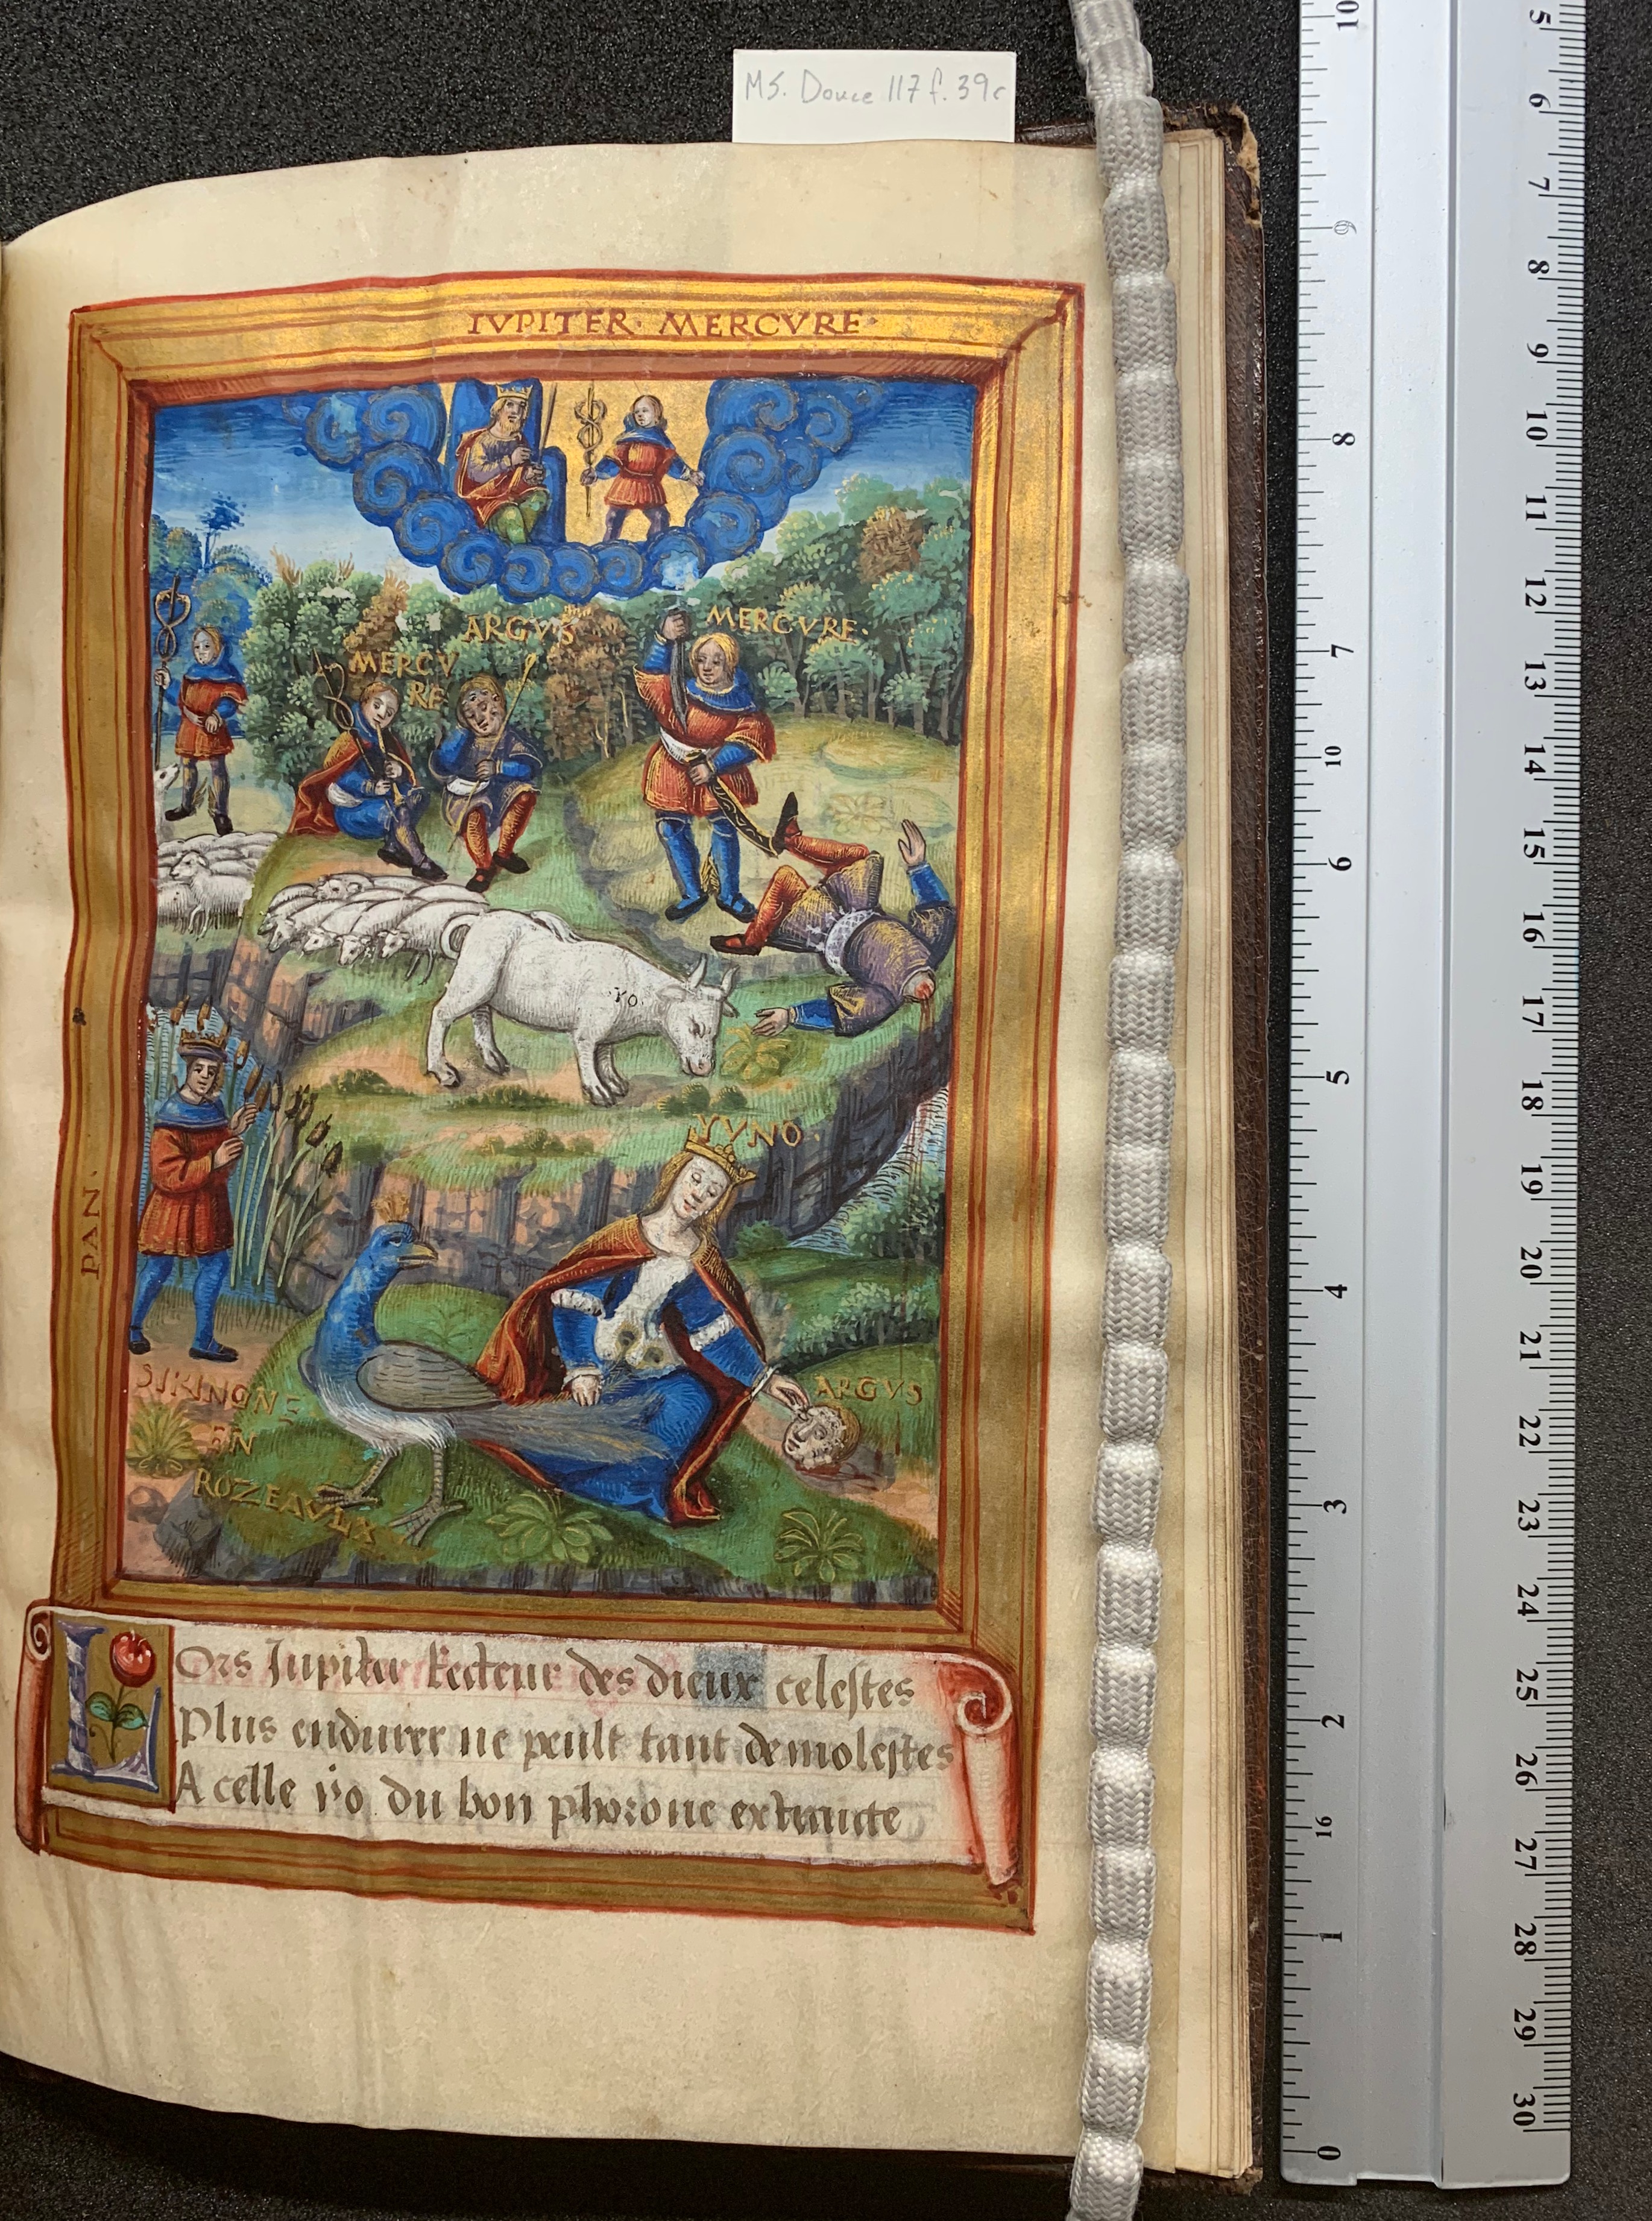 MS. Douce 117 f. 39r
IVPITER · MERCVRE ·
ARGVS
MERCVRE ·
MERCV
RE
·yo·
YVNO ·
PAN ·
ARGVS
SIRINGNE
EN
ROZEAVLX
LOrs Jupiter Recteur des dieux celestes
Plus endurer ne peult tant de molestes
A celle yo du bon phorone extraicte
10
9
8
7
10
6
5
4
3
2
16
1
0
5
6
7
8
9
10
11
12
13
14
15
16
17
18
19
20
21
22
23
24
25
26
27
28
29
30